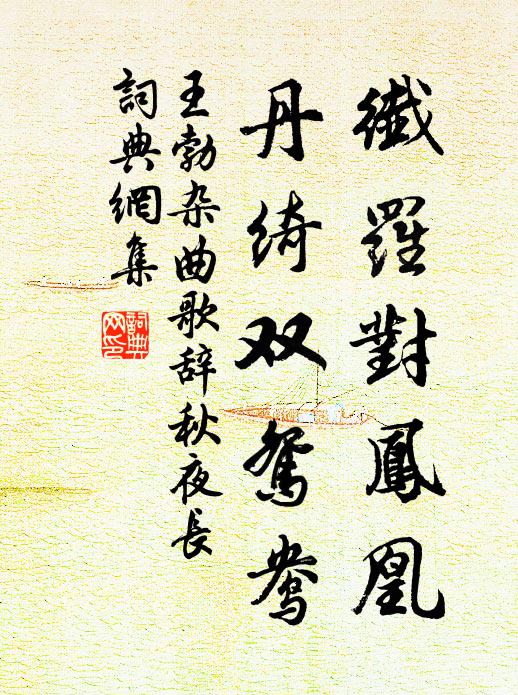 纖羅對鳳凰
丹绮双鴛鴦
王勃杂曲歌辞秋夜長
詞典網集
詞典网印